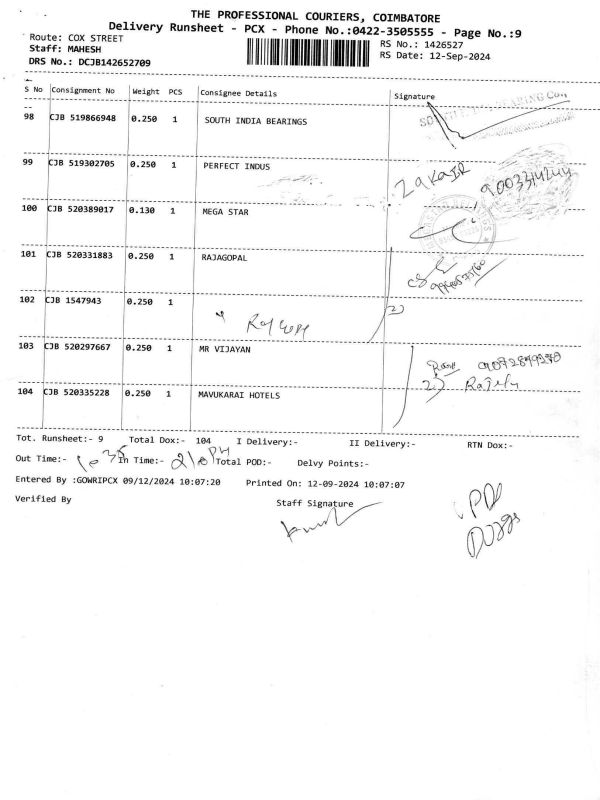 THE PROFESSIONAL COURIERS, COIMBATORE
Delivery Runsheet - PCX - Phone No.:0422-3505555 - Page No.:9
Route: COX STREET
RS No.: 1426527
Staff: MAHESH
RS Date: 12-Sep-2024
DRS No.: DCJB142652709
S No Consignment No Weight PCS Consignee Details Signature
98 CJB 519866948 0.250 1 SOUTH INDIA BEARINGS
99 CJB 519302705 0.250 1 PERFECT INDUS ZAKAIR
100 CJB 520389017 0.130 1 MEGA STAR
101 CJB 520331883 0.250 1 RAJAGOPAL
102 CJB 1547943 0.250 1
103 CJB 520297667 0.250 1 MR VIJAYAN
104 CJB 520335228 0.250 1 MAVUKARAI HOTELS
Tot. Runsheet:- 9 Total Dox:- 104 I Delivery:- II Delivery:- RTN Dox:-
Out Time:- In Time:- Total POD:- Delvy Points:-
Entered By :GOWRIPCX 09/12/2024 10:07:20 Printed On: 12-09-2024 10:07:07
Verified By Staff Signature